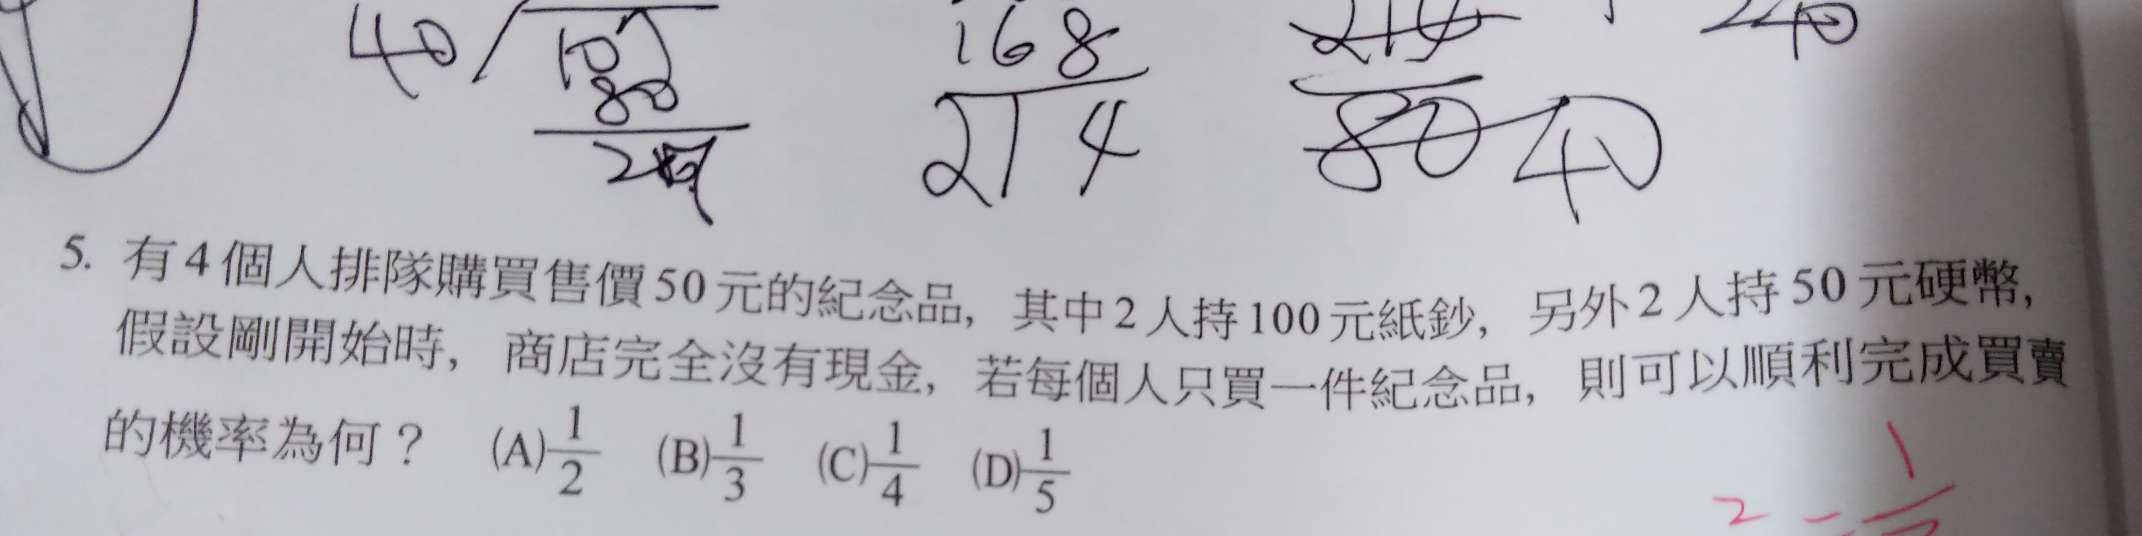 40 80
168
214 80 40
5. 有4個人排隊購買售價50元的紀念品，其中2人持100元紙鈔，另外2人持50元硬幣，
假設剛開始時，商店完全沒有現金，若每個人只買一件紀念品，則可以順利完成買賣
的機率為何？ (A)1/2 (B)1/3 (C)1/4 (D)1/5